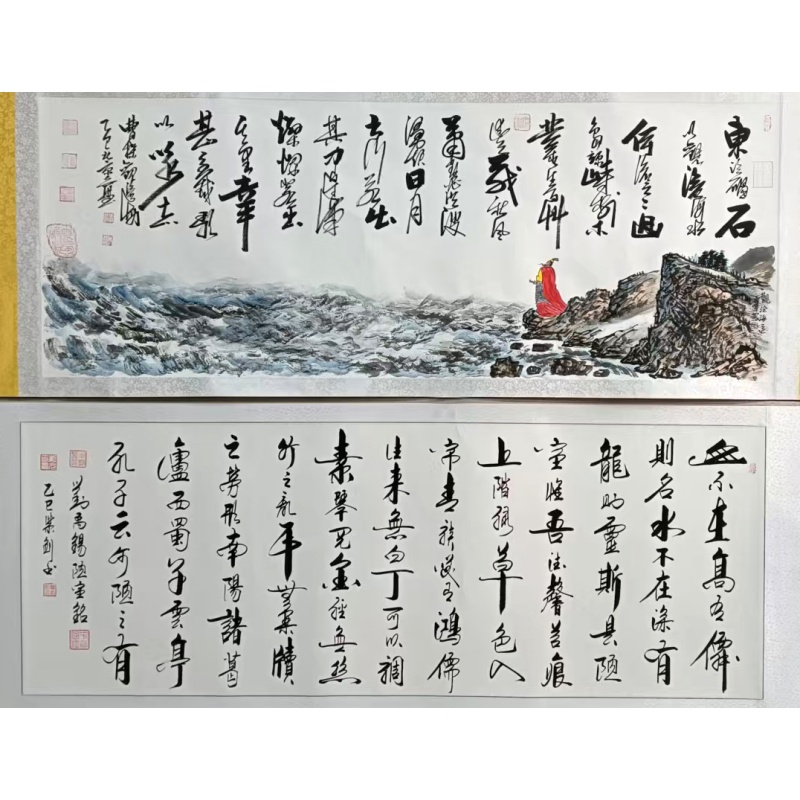 東臨碣石
以觀滄海水
何澹澹山
島竦峙樹木
叢生百草
豐茂秋風
蕭瑟洪波
湧起日月
之行若出
其中星漢
燦爛若出
其裏幸
甚至哉歌
以詠志
曹操觀滄海
乙巳
山不在高有僊
則名水不在深有
龍則靈斯是陋
室惟吾德馨苔痕
上階綠草色入
簾青談笑有鴻儒
往來無白丁可以調
素琴閱金經無絲
竹之亂耳無案牘
之勞形南陽諸葛
廬西蜀子雲亭
孔子云何陋之有
劉禹錫陋室銘
乙巳